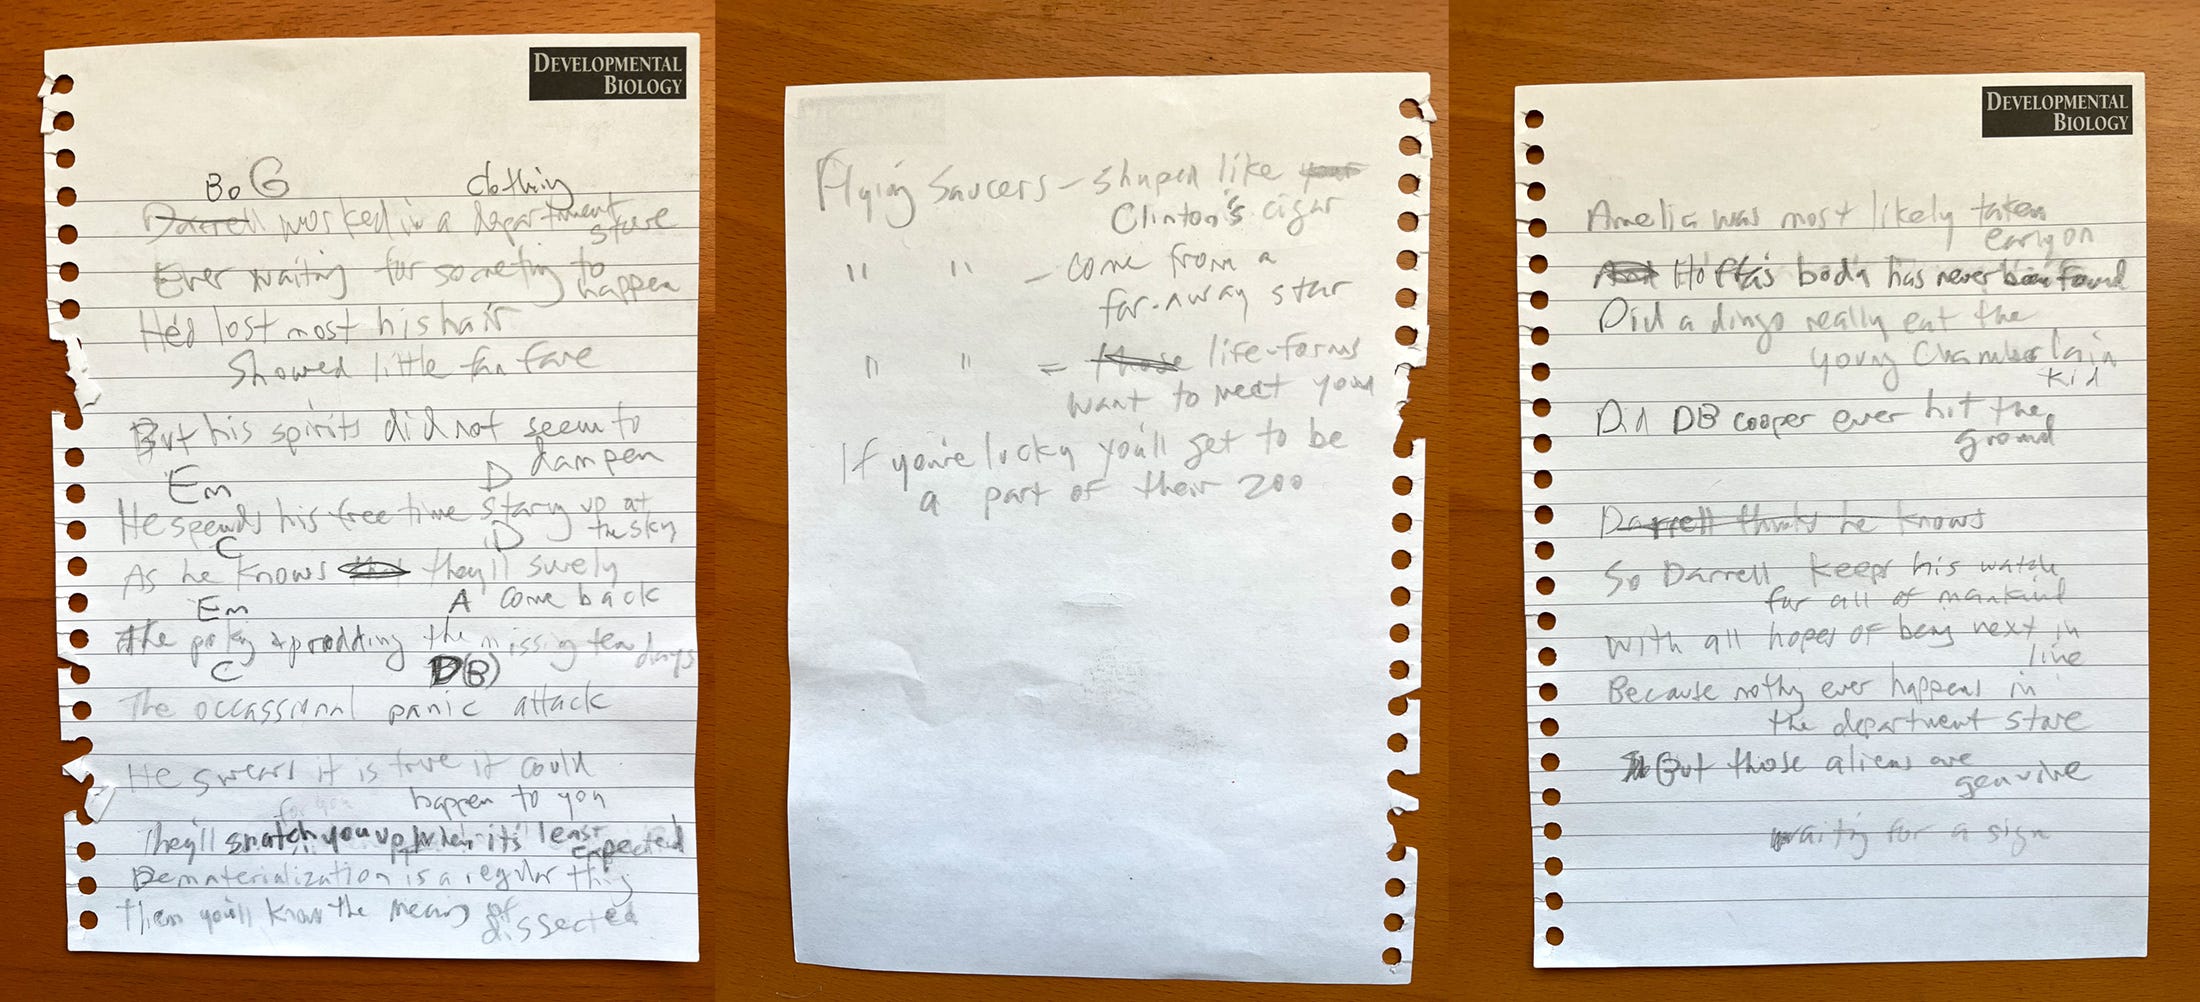 DEVELOPMENTAL
BIOLOGY
Bo G clothing
Darrell worked in a department
store
Ever waiting for someting to
happen
He'd lost most his hair
Showed little fan fare
But his spirits did not seem to
dampen
Em D
He spends his free time staring up at
the sky
C D
As he knows that they'll surely
come back
Em A
The poking & prodding the missing ten days
C D(B)
The occassional panic attack
He swears it is true it could
happen to you
for you
They'll snatch you up when it's least
expected
Dematerialization is a regular thing
Then you'll know the meaning of
dissected
Flying Saucers - shaped like your
Clinton's cigar
" " - come from a
far-away star
" " = those life-forms
want to meet you
If you're lucky you'll get to be
a part of their zoo
DEVELOPMENTAL
BIOLOGY
Amelia was most likely taken
early on
And Hoffa's body has never been found
Did a dingo really eat the
young Chamberlain
kid
Did DB cooper ever hit the
ground
Darrell thinks he knows
So Darrell keeps his watch
for all of mankind
With all hopes of being next in
line
Because nothing ever happens in
the department store
But those aliens are
genuine
waiting for a sign